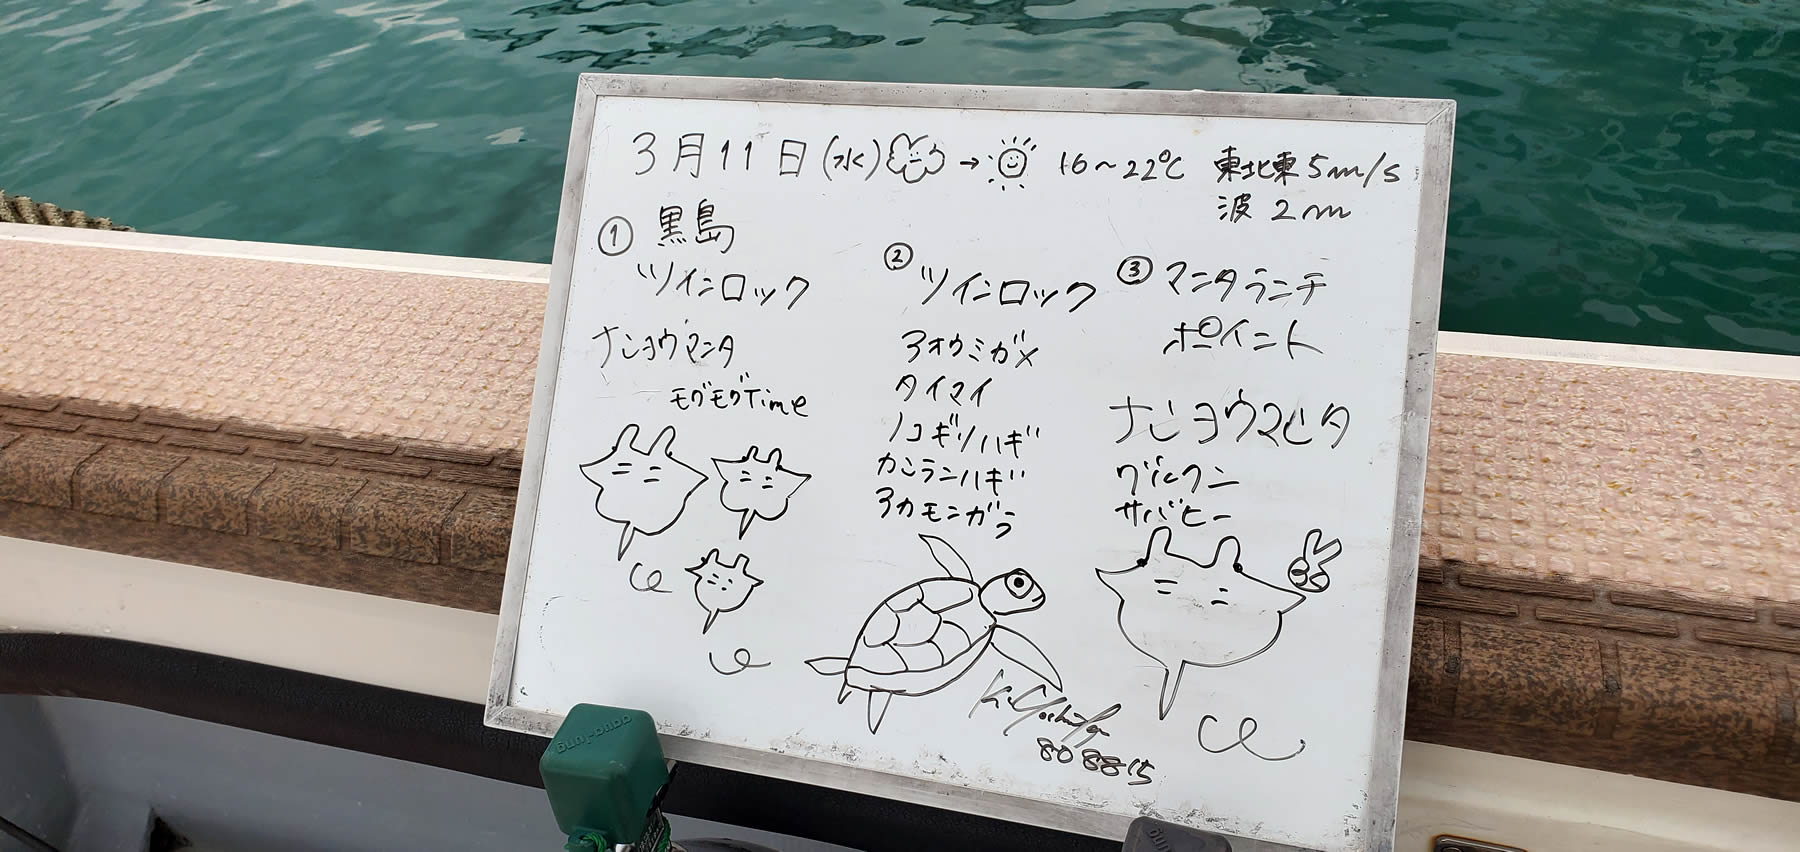 3月11日(水) → 16〜22℃ 東北東5m/s
波 2m
① 黒島
ツインロック
ナンヨウマンタ
モグモグTime
② ツインロック
アオウミガメ
タイマイ
ノコギリハギ
カンランハギ
アカモンガラ
③ マンタランチ
ポイント
ナンヨウマンタ
グルクン
サバヒー
808815
aqua-lung